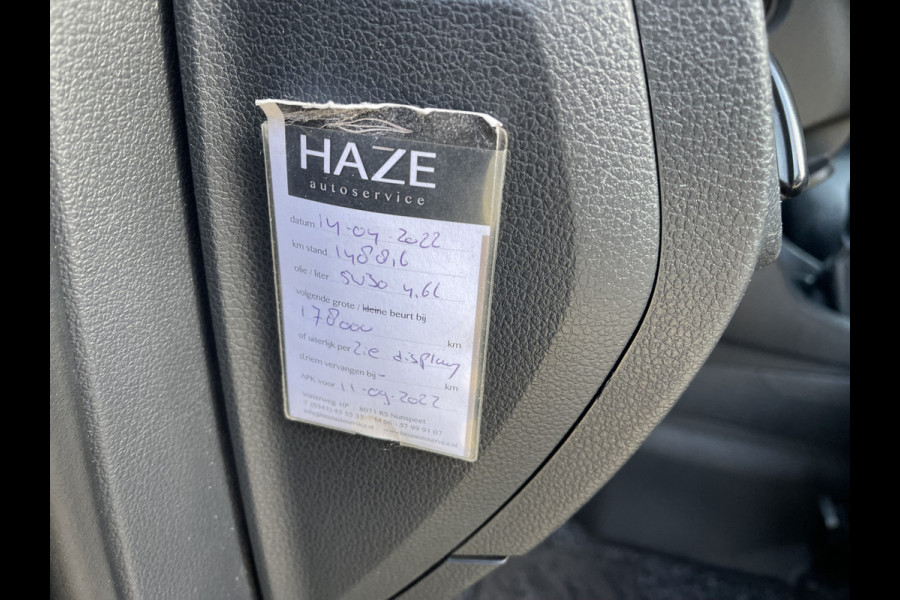 HAZE
autoservice
datum 14-04-2022
km stand 14886
olie / liter 5W30 4,6L
volgende grote / kleine beurt bij
178000 km
of uiterlijk per zie display
d.riem vervangen bij - km
APK voor 11-09-2022
8071 RS Nunspeet